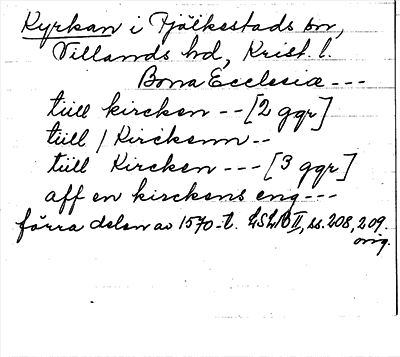 Kyrkan i Fjälkestads sn,
Villands hd, Krist. l.
Bona Ecclesiæ ---
tiill kircken -- [2 ggr]
tiill / Kirckenn --
tiill Kircken --- [3 ggr]
aff en kirckens eng ---
förra delen av 1570-t. LSLB II, ss. 208, 209.
orig.